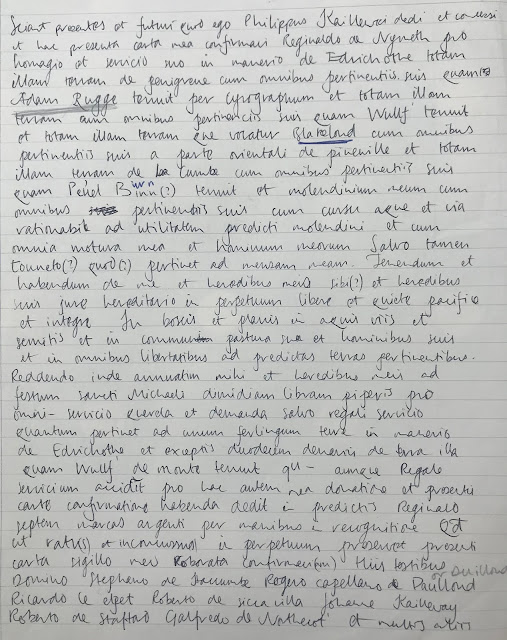 Sciant presentes et futuri quod ego Philippus Kaillewai dedi et concessi
et hac presenta carta mea confirmavi Reginaldo de Nymeth pro
homagio et servicio suo in manerio de Edrichothe totam
illam terram de genigrene cum omnibus pertinentiis suis quam
Adam Rugge tenuit per cyrographum et totam illam
terram cum omnibus pertinenciis suis quam Wulf' tenuit
et totam illam terram que vocatur Blakelond cum omnibus
pertinentiis suis a parte orientali de pineville et totam
illam terram de la Cumbe cum omnibus pertinentiis suis
quam tenuit et molendinium meum cum
omnibus pertinentiis suis cum cursu aque et via
rationabili ad utilitatem predicti molendini et cum
omnia motura mea et hominum meorum Salvo tamen
Touneto(?) quod(?) pertinet ad mensam meam. Tenendum et
habendum de me et heredibus meis sibi(?) et heredibus
suis jure hereditario in perpetuum libere et quiete pacifice
et integre In boscis et planis in aquis viis et
semitis et in communi pastura sua et hominibus suis
et in omnibus libertatibus ad predictas terras pertinentibus.
Reddendo inde annuatim mihi et heredibus meis ad
festum sancti Michaeli dimidiam libram piperis pro
omni- servicio querela et demanda salvo regali servicio
quantum pertinet ad unum ferlingum terre in manerio
de Edrichothe et exceptis duodecim denariis de terra illa
quam Wulf' de monte tenuit qu- aunque Regale
servicium accidit pro hac autem mea donatione et presentis
carte confirmatione habenda dedit in predictis Reginald
septem marcas argenti per manibus in recognitione Et
ut ratu(s) et inconcussu(s) in perpetuum preservet presenti
carta sigillo meo roborata confirmavi(m) Hiis testibus
or Duilland
Domino Stephano de Haccumbe Rogero capellano de Paullond
Ricardo le Roberto de sicca villa Johanne Kaillewey
Roberto de Galfredo de et multis aliis